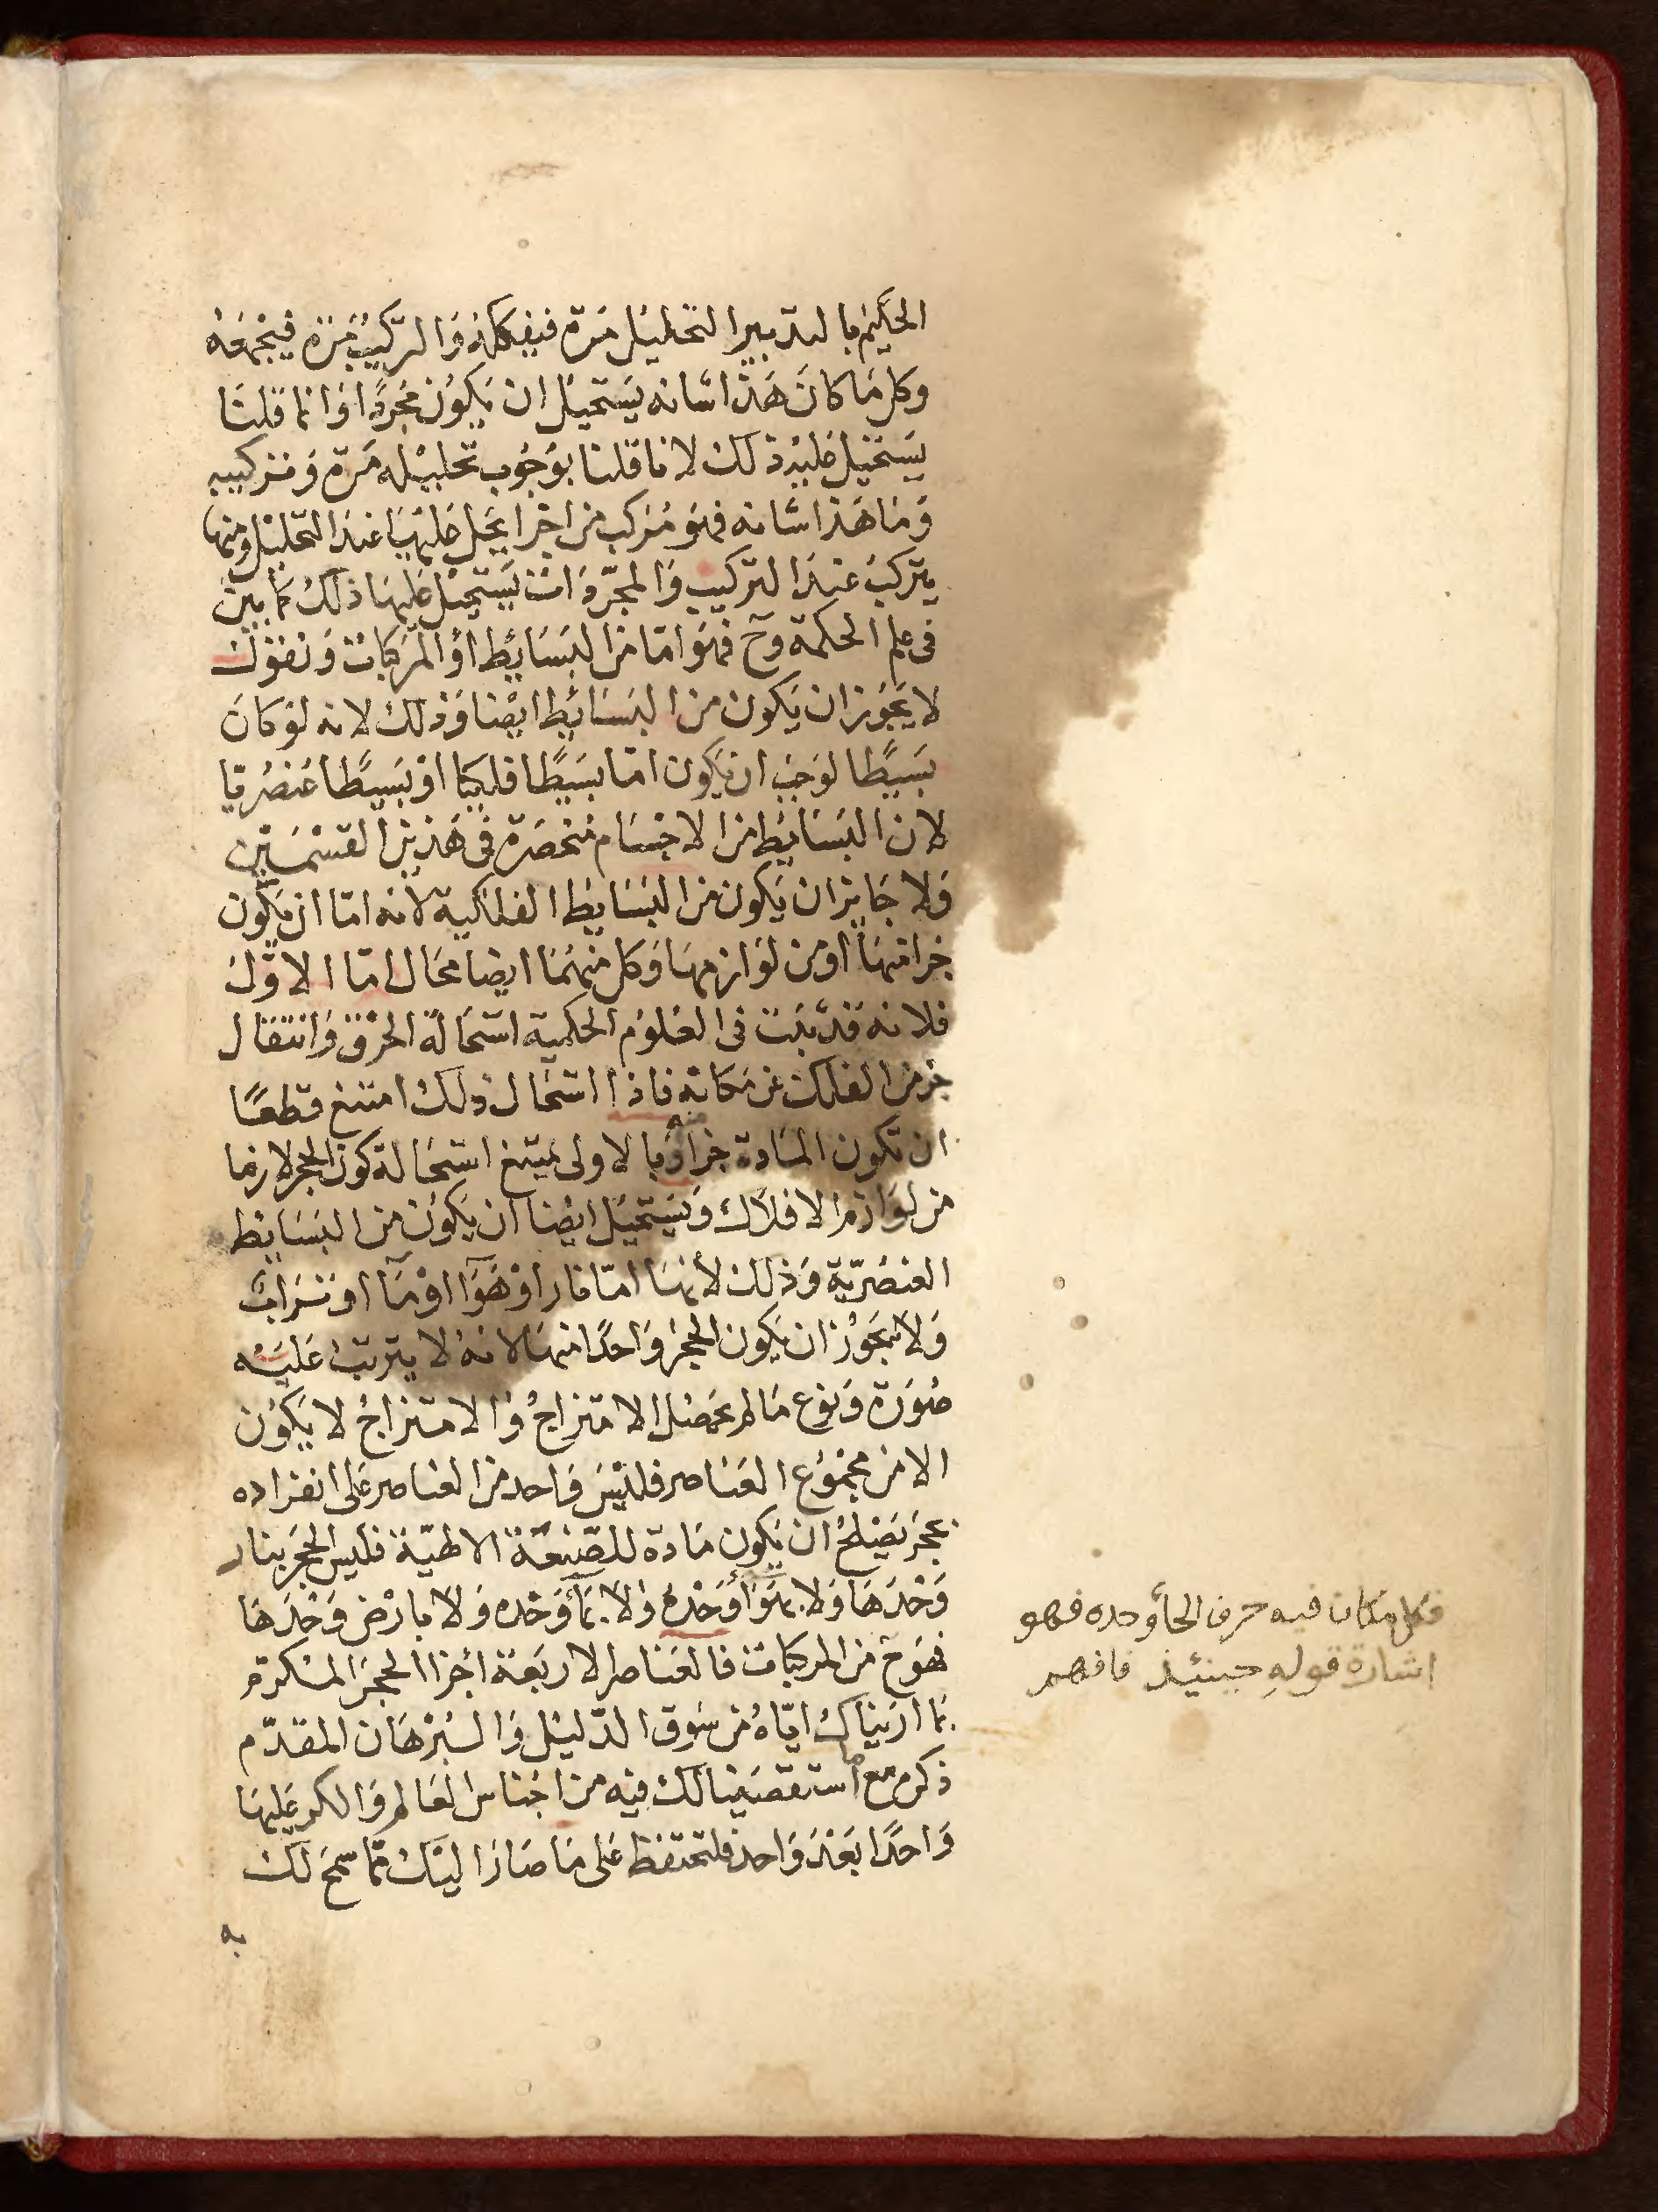 الحكيم بالتدبير التحليل مرة فيفككه والتركيب مرة فيجمعه
وكل ما كان هذا شانه يستحيل ان يكون مجردا وانما قلنا
يستحيل عليه ذلك لاننا قلنا بوجوب تحليله مرة وتركيبه
وما هذا شانه فهو مركب من اجزا يحل عليها عند التحليل ومنها
يتركب عند التركيب والمجردات يستحيل عليها ذلك كما بين
فى علم الحكمة وح فهو اما من البسائط او المركبات ونقول
لا يجوز ان يكون من البسائط ايضا وذلك لانه لو كان
بسيطا لوجب ان يكون اما بسيطا فلكيا او بسيطا عنصريا
لان البسايط من الاجسام منحصرة فى هذين القسمين
ولا جايز ان يكون من البسايط الفلكية لانه اما ان يكون
جزا منها او من لوازمها وكل منهما ايضا محال اما الاول
فلانه قد ثبت فى العلوم الحكمية استحالة الخرق وانتقال
جز من الفلك عن مكانه فاذا استحال ذلك امتنع قطعا
ان تكون المادة جزا منه وبالاولى يمتنع استحالة كون الحجر لازما
من لوازم الافلاك ويستحيل ايضا ان يكون من البسايط
العنصرية وذلك لانها اما نارا او هوآا او مآا او ترابا
ولا يجوز ان يكون الحجر واحدا منها لانه لا يترتب عليه
صورة ونوع ما لم يحصل الامتزاج والامتزاج لا يكون
الا من مجموع العناصر فليس واحد من العناصر على انفراده
بحجر يصلح ان يكون مادة للصنعة الالهية فليس الحجر بنار
وحدها ولا بهوآ وحده ولا بمآ وحده ولا بارض وحدها
فهو ح من المركبات فالعناصر الاربعة اجزا الحجر المكرم
بما اريناك اياه من سوق الدليل والبرهان المقدم
ذكره مع ما استقصينا لك فيه من اجناس العالم والكر عليها
واحدا بعد واحد فلتحتفظ على ما صار اليك مما سمح لك
به
فكل مكان فيه حرف الحأ وحده فهو
اشارة قوله حينئذ فافهم